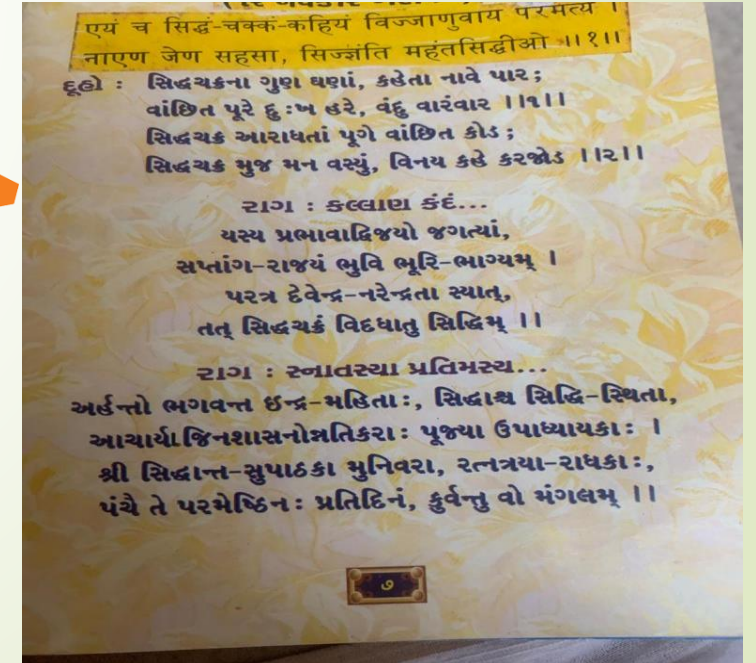 एयं च सिद्धं-चक्कं-कहियं विज्जाणुवाय परमत्थं ।
नाएण जेण सहसा, सिज्झंति महंतसिद्धीओ ॥१॥
દૂહો : સિદ્ધચક્રના ગુણ ઘણાં, કહેતા નાવે પાર;
વાંછિત પૂરે દુ:ખ હરે, વંદુ વારંવાર ।।૧।।
સિદ્ધચક્ર આરાધતાં પૂગે વાંછિત કોડ;
સિદ્ધચક્ર મુજ મન વસ્યું, વિનય કહે કરજોડ ।।૨।।
રાગ : કલ્લાણ કંદં...
યસ્ય પ્રભાવાદ્વિજયો જગત્યાં,
સપ્તાંગ-રાજયં ભુવિ ભૂરિ-ભાગ્યમ્ ।
પરત્ર દેવેન્દ્ર-નરેન્દ્રતા સ્યાત્,
તત્ સિદ્ધચક્રં વિદધાતુ સિદ્ધિમ્ ।।
રાગ : સ્નાતસ્યા પ્રતિમસ્ય...
અર્હન્તો ભગવન્ત ઇન્દ્ર-મહિતાઃ, સિદ્ધાશ્ચ સિદ્ધિ-સ્થિતા,
આચાર્યા જિનશાસનોન્નતિકરાઃ પૂજ્યા ઉપાધ્યાયકાઃ ।
શ્રી સિદ્ધાન્ત-સુપાઠકા મુનિવરા, રત્નત્રયા-રાધકાઃ,
પંચૈ તે પરમેષ્ઠિનઃ પ્રતિદિનં, કુર્વન્તુ વો મંગલમ્ ।।
૭